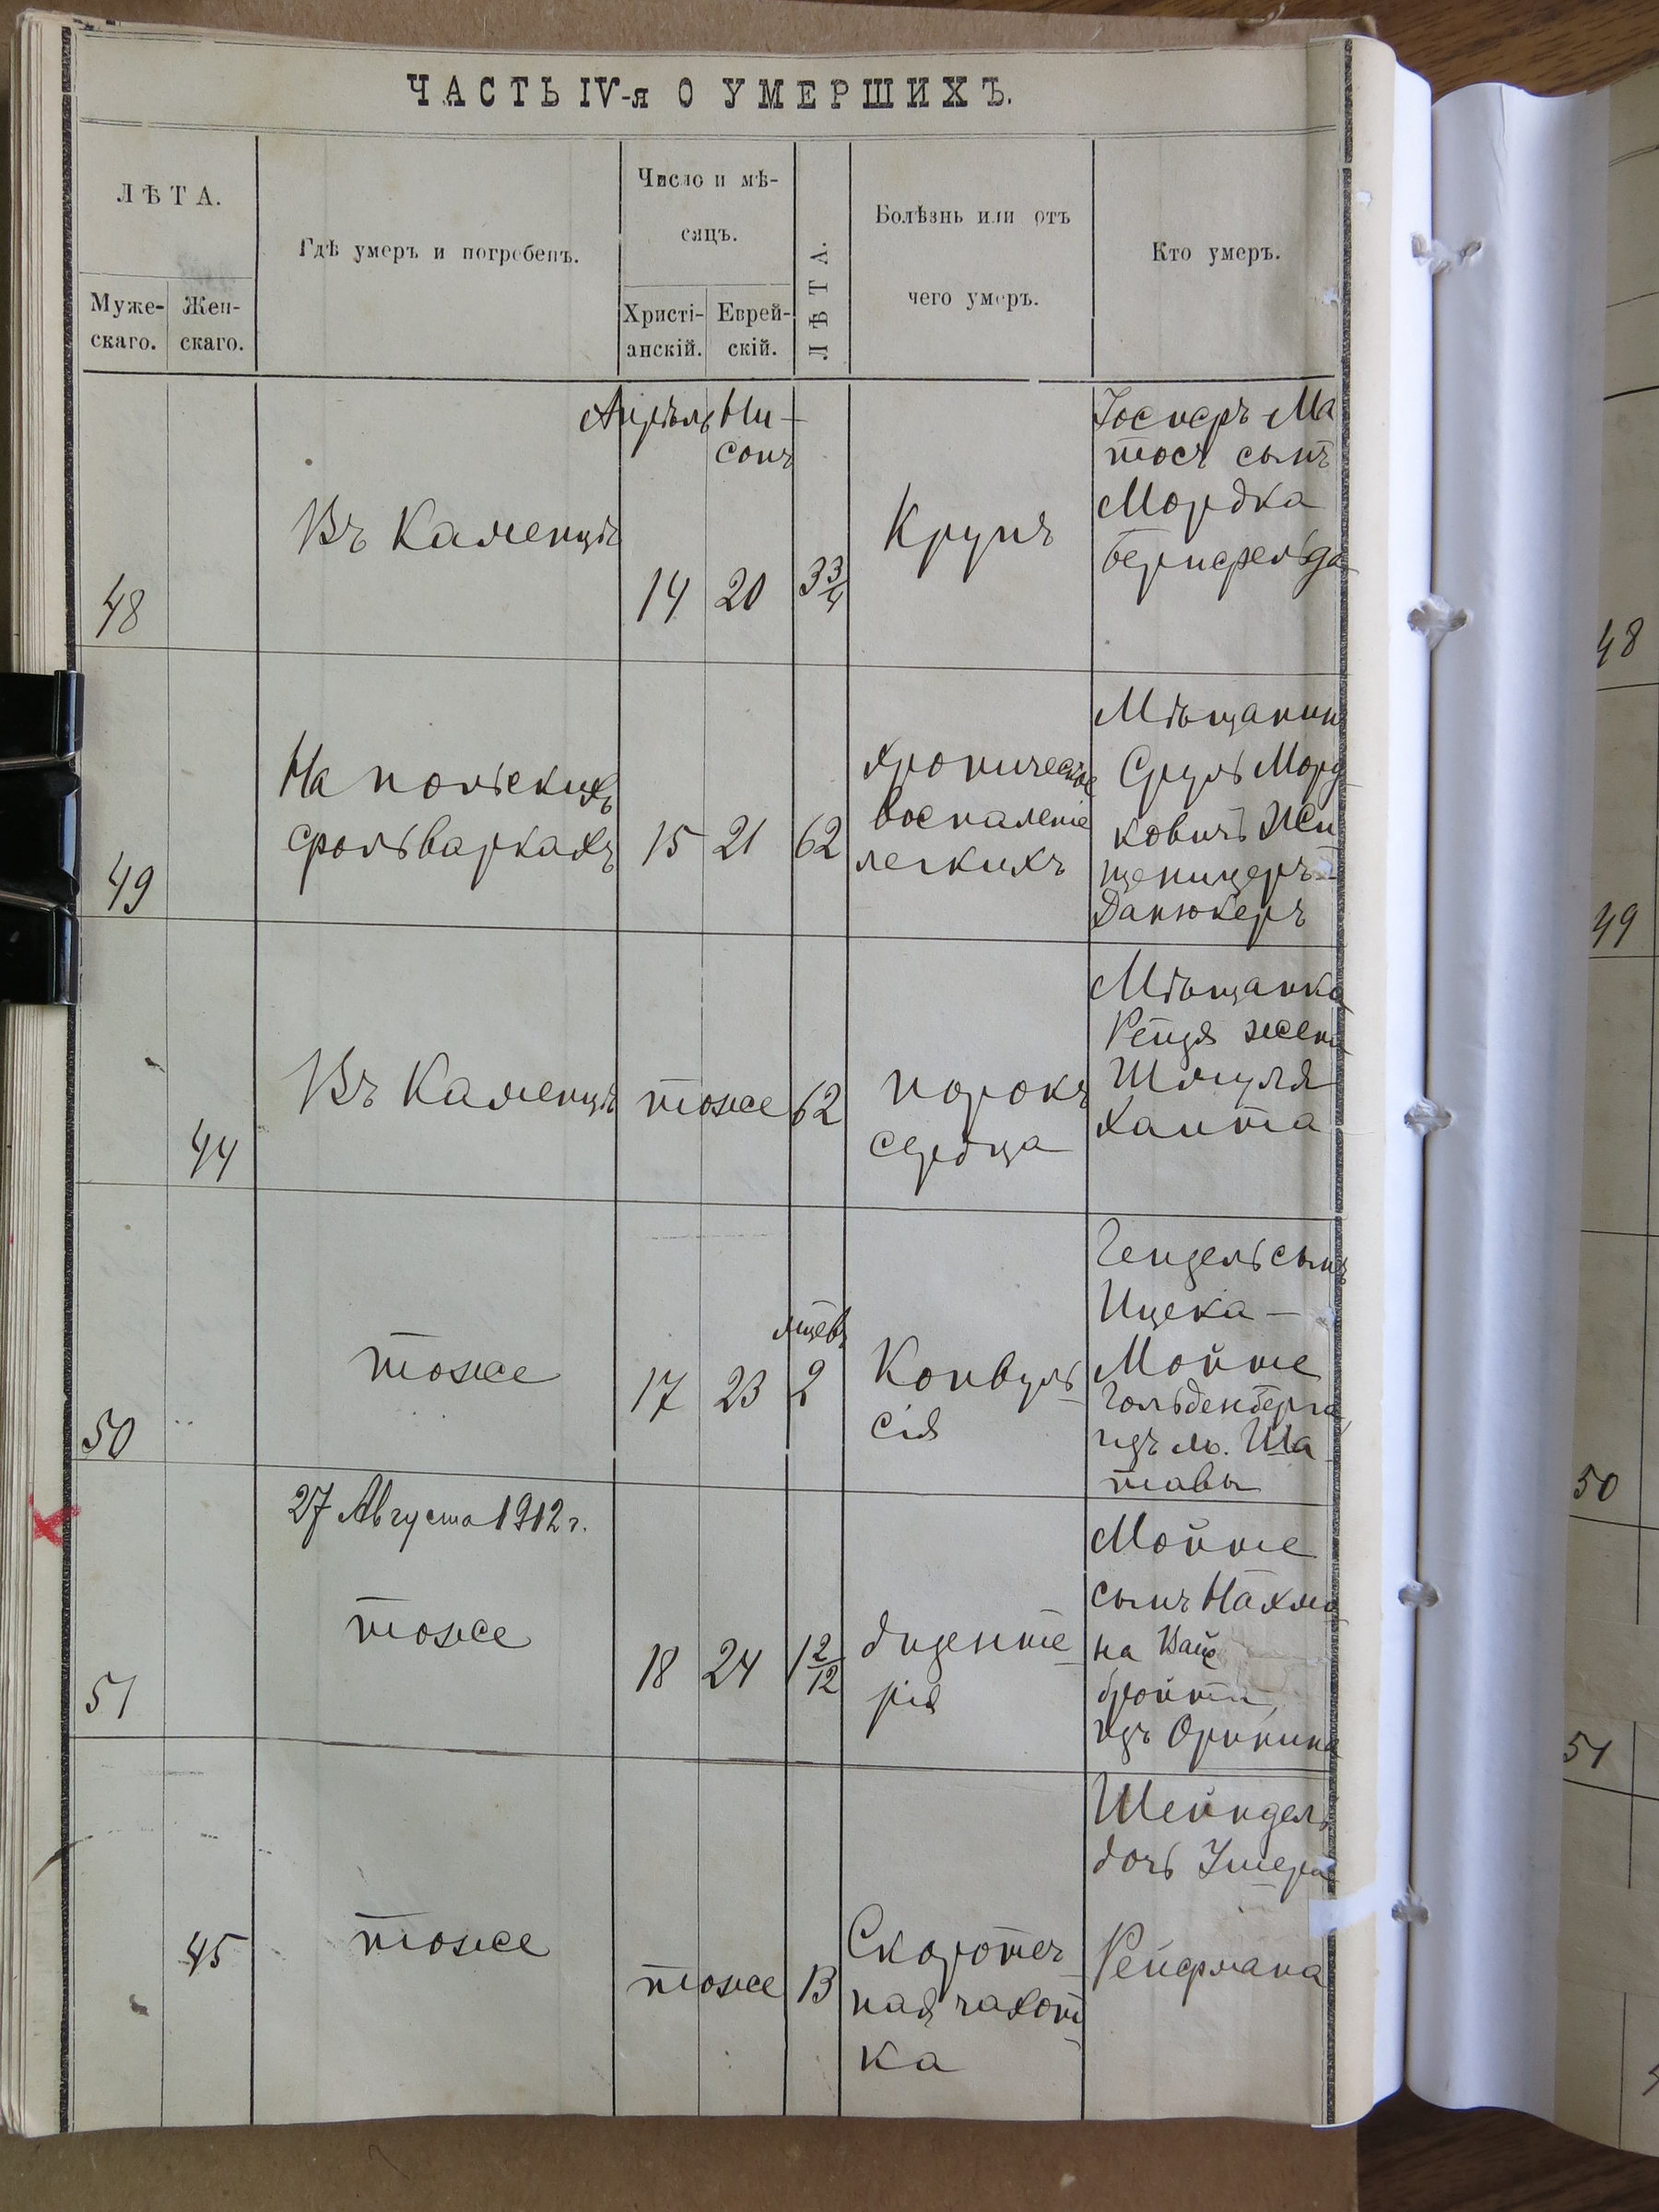 ЧАСТЬ IV-я О УМЕРШИХЪ.
ЛѢТА.
Муже-
скаго.
Жен-
скаго.
Гдѣ умеръ и погребенъ.
Число и мѣ-
сяцъ.
Христі-
анскій.
Еврей-
скій.
ЛѢТА.
Болѣзнь или отъ
чего умеръ.
Кто умеръ.
48
Въ Каменцѣ
Апрѣль
14
Ни-
сонъ
20
3 3/4
Крупъ
Іосперъ-Ма
тосъ сынъ
Мордка
Бернфельда
49
На польскихъ
фольваркахъ
15
21
62
хроническое
воспаленіе
легкихъ
Мѣщанин
Сруль Морд
ковичъ
Данюкеръ
44
Въ Каменцѣ
тоже
62
порокъ
сердца
Мѣщанка
Рейзя жена
Шмуля
Хаита
50
тоже
17
23
мцевъ
2
Конвуль
сія
Гендель сынъ
Ицека –
Мойше
Гольденберга
изъ м. Ша
тавы
27 Августа 1912 г.
51
тоже
18
24
1 2/12
дизенте
рія
Мойше
сынъ Нахма
на Вайс
бройта
изъ Оринина
45
тоже
тоже
13
Скоротеч
ная чахот
ка
Шейндель
дочь Ушера
Рейфмана
48
49
50
51